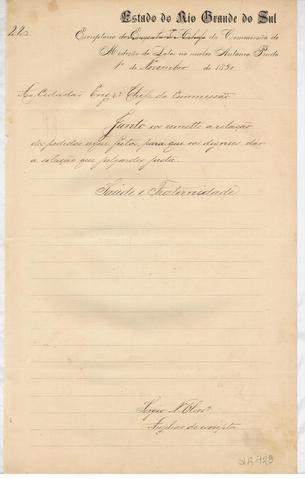 Estado do Rio Grande do Sul
22
Escriptorio do da Commissão de
Medição de Lotes no nucleo Antonio Prado
1º de Novembro de 1890
Ao Cidadão Engº Chefe da Commissão
Junto vos remetto a relação
dos pedidos aqui feitos, para que vos digneis dar
a solução que julgardes justa.
Saúde e Fraternidade
Auxiliar de escripta
429